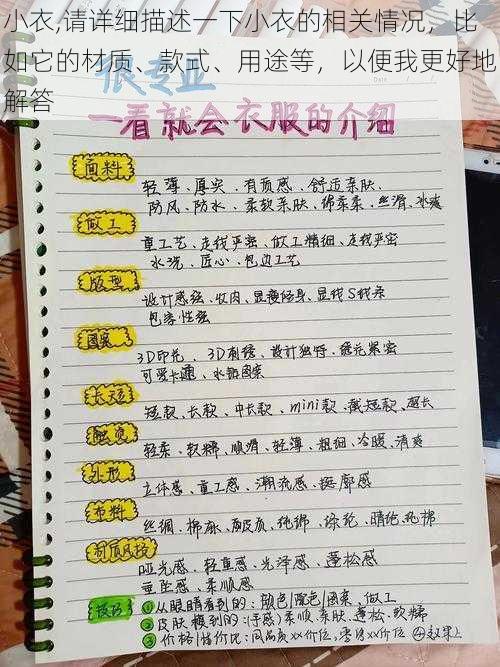 小衣,请详细描述一下小衣的相关情况，比
如它的材质、款式、用途等，以便我更好地
解答
很专业
一看就会衣服的介绍
面料
轻薄、厚实、有质感、舒适亲肤、
防风、防水、柔软亲肤、绵柔柔、丝滑、冰爽
做工
重工艺、走线严密、做工精细、走线严密
水洗、匠心、包边工艺
版型
设计感强、收肉、显瘦修身、显线S线条
包容性强
图案
3D印花、3D刺绣、设计独特、绣花紧密
可爱卡通、水钻图案
长短
短款、长款、中长款、mini款、截短款、超长
触觉
轻柔、软糯、顺滑、轻薄、粗细、冷暖、清爽
外形
立体感、重工感、潮流感、挺廓感
布料
丝绸、棉麻、皮质、纯棉、涤纶、晴纶、孔棉
材质风格
哑光感、轻重感、光泽感、蓬松感
垂坠感、柔顺感
技巧
①从眼睛看到的：颜色|配色|图案、做工
②皮肤摸到的：(手感)柔顺、亲肤、蓬松、软糯
③价格|性价比：同品质xx价位，